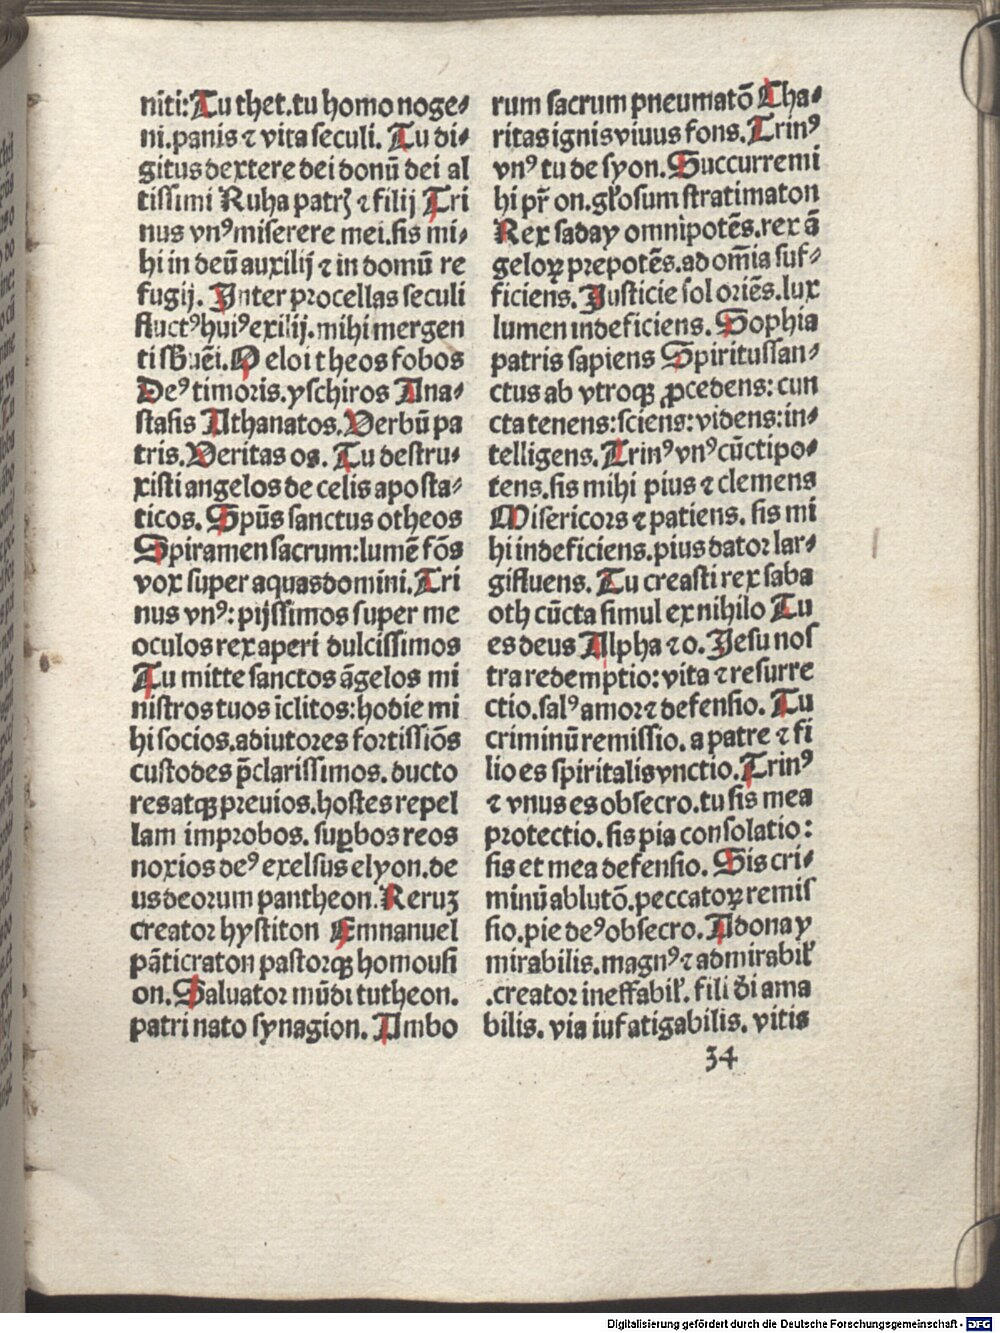 niti: Tu thet. tu homo noge⸗
ni. panis ⁊ vita seculi. Tu di⸗
gitus dextere dei donū dei al
tissimi Ruha patrꝫ ⁊ filij Tri
nus vnꝰ miserere mei. sis mi⸗
hi in deū auxilij ⁊ in domū re
fugij. Inter procellas seculi
fluctꝰ huiꝰ exilij. mihi mergen
ti O eloi theos fobos
Deꝰ timoris. yschiros Ana⸗
stasis Athanatos. Verbū pa
tris. Veritas os. Tu destru⸗
xisti angelos de celis aposta⸗
ticos. Spūs sanctus otheos
Spiramen sacrum: lumē fōs
vox super aquas domini. Tri
nus vnꝰ: pijssimos super me
oculos rex aperi dulcissimos
Tu mitte sanctos āgelos mi
nistros tuos īclitos: hodie mi
hi socios. adiutores fortissiōs
custodes p̄clarissimos. ducto
res atqꝫ preuios. hostes repel
lam improbos. suꝑbos reos
noxios deꝰ exelsus elyon. de
us deorum pantheon. Reruꝫ
creator hystiton Emnanuel
pāticraton pastorqꝫ homousi
on. Saluator mūdi tutheon.
patri nato synagion. Ambo
rum sacrum pneumatō Cha⸗
ritas ignis viuus fons. Trinꝰ
vnꝰ tu de syon. Succurre mi
hi pr̄ on. gl̄osum stratimaton
Rex saday omnipotēs. rex ā
geloꝝ prepotēs. ad om̄ia suf⸗
ficiens. Justicie sol oriēs. lux
lumen indeficiens. Sophia
patris sapiens Spiritussan⸗
ctus ab vtroqꝫ ꝓcedens: cun
cta tenens: sciens: videns: in⸗
telligens. Trinꝰ vnꝰ cūctipo⸗
tens. sis mihi pius ⁊ clemens
Misericors ⁊ patiens. sis mi
hi indeficiens. pius dator lar⸗
gifluens. Tu creasti rex saba
oth cūcta simul ex nihilo Tu
es deus Alpha ⁊ o. Jesu nos
tra redemptio: vita ⁊ resurre
ctio. salꝰ amor ⁊ defensio. Tu
criminū remissio. a patre ⁊ fi
lio es spiritalis vnctio. Trinꝰ
⁊ vnus es obsecro. tu sis mea
protectio. sis pia consolatio:
sis et mea defensio. Sis cri⸗
minū ablutō. peccatoꝝ remis
sio. pie deꝰ obsecro. Adonay
mirabilis. magnꝰ ⁊ admirabil̄
.creator ineffabil̄. fili d̄i ama
bilis. via iufatigabilis. vitis
34
Digitalisierung gefördert durch die Deutsche Forschungsgemeinschaft - DFG